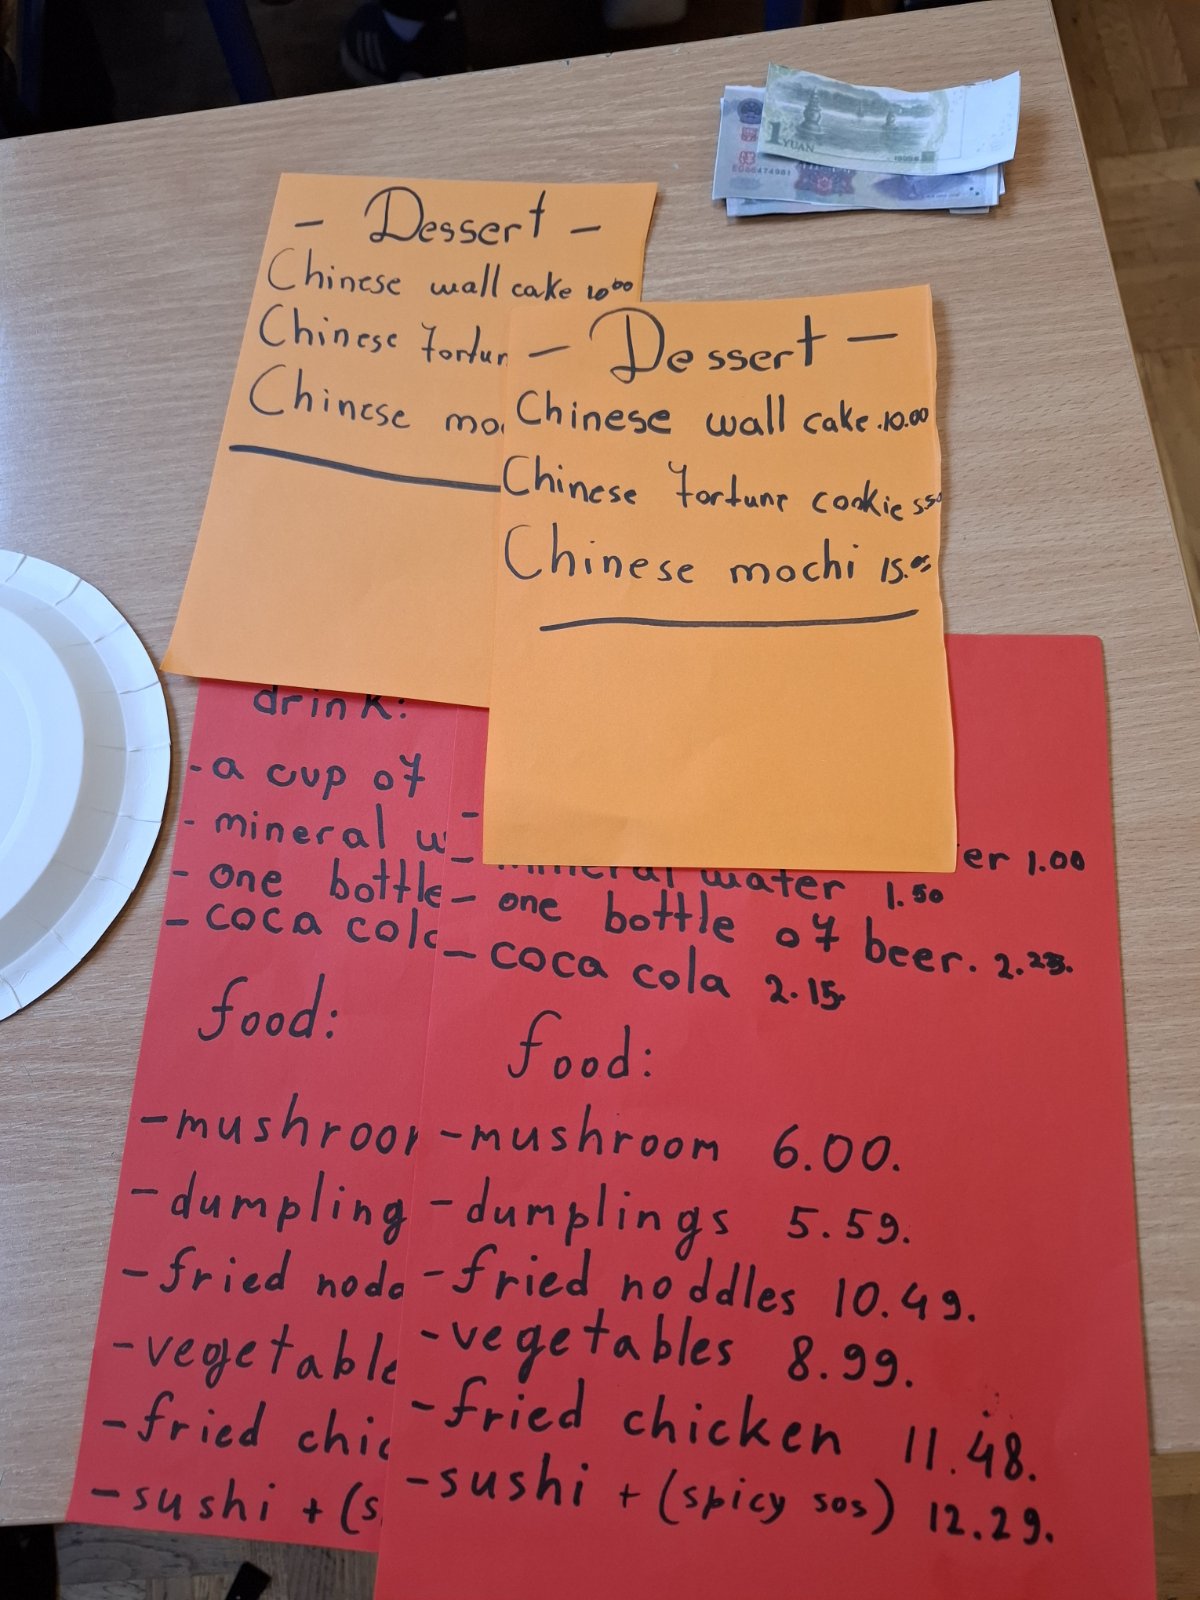 1 YUAN
ED66474981
- Dessert -
Chinese wall cake 10⁰⁰
Chinese fortun
Chinese mo
- Dessert -
Chinese wall cake.10.00
Chinese fortune cookie
Chinese mochi 15.
drink:
-a cup of
- mineral w
- one bottle
- coca cola
food:
-mushroom
-dumpling
-fried nodd
-vegetable
-fried chic
-sushi + (s
er 1.00
- mineral water 1.50
- one bottle of beer. 2.25.
- coca cola 2.15.
food:
-mushroom 6.00.
-dumplings 5.59.
-fried noddles 10.49.
-vegetables 8.99.
-fried chicken 11.48.
-sushi + (spicy sos) 12.29.